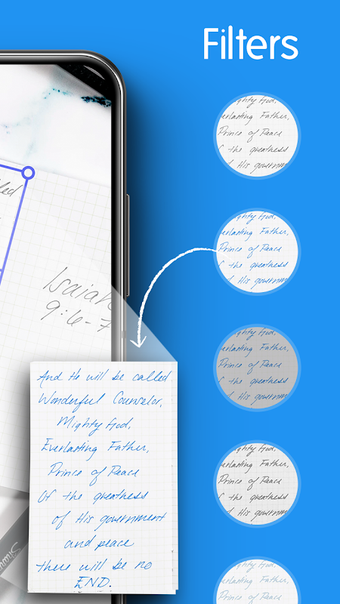 Filters
Mighty God,
Everlasting Father,
Prince of Peace
Of the greatness
of His governmen
Mighty God,
verlasting Father,
Prince of Peace
f the greatness
of His governmen
led
Mighty God,
verlasting Father,
Prince of Peace
f the greatness
of His governmen
Isaiah
9:6-7
And He will be called
Wonderful Counselor,
Mighty God,
Everlasting Father,
Prince of Peace
Of the greatness
of His government
and peace
there will be no
END.
Mighty God,
verlasting Father,
Prince of Peace
f the greatness
of His governmen
verlasting Father,